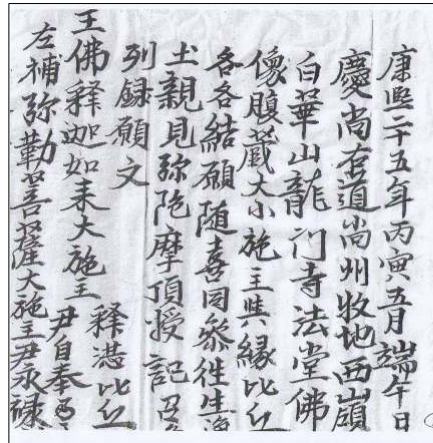 康熙二十五年丙寅五月端午日
慶尚右道尚州牧地西嶺
白華山龍门寺法堂佛
像腹藏大小施主與緣比丘
各各結願随喜同参徃生淨
土親見弥陁摩頂授記
列録願文
王佛釋迦如来大施主
釋湛比丘
尹自奉
左補弥勒菩薩大施主尹永禄